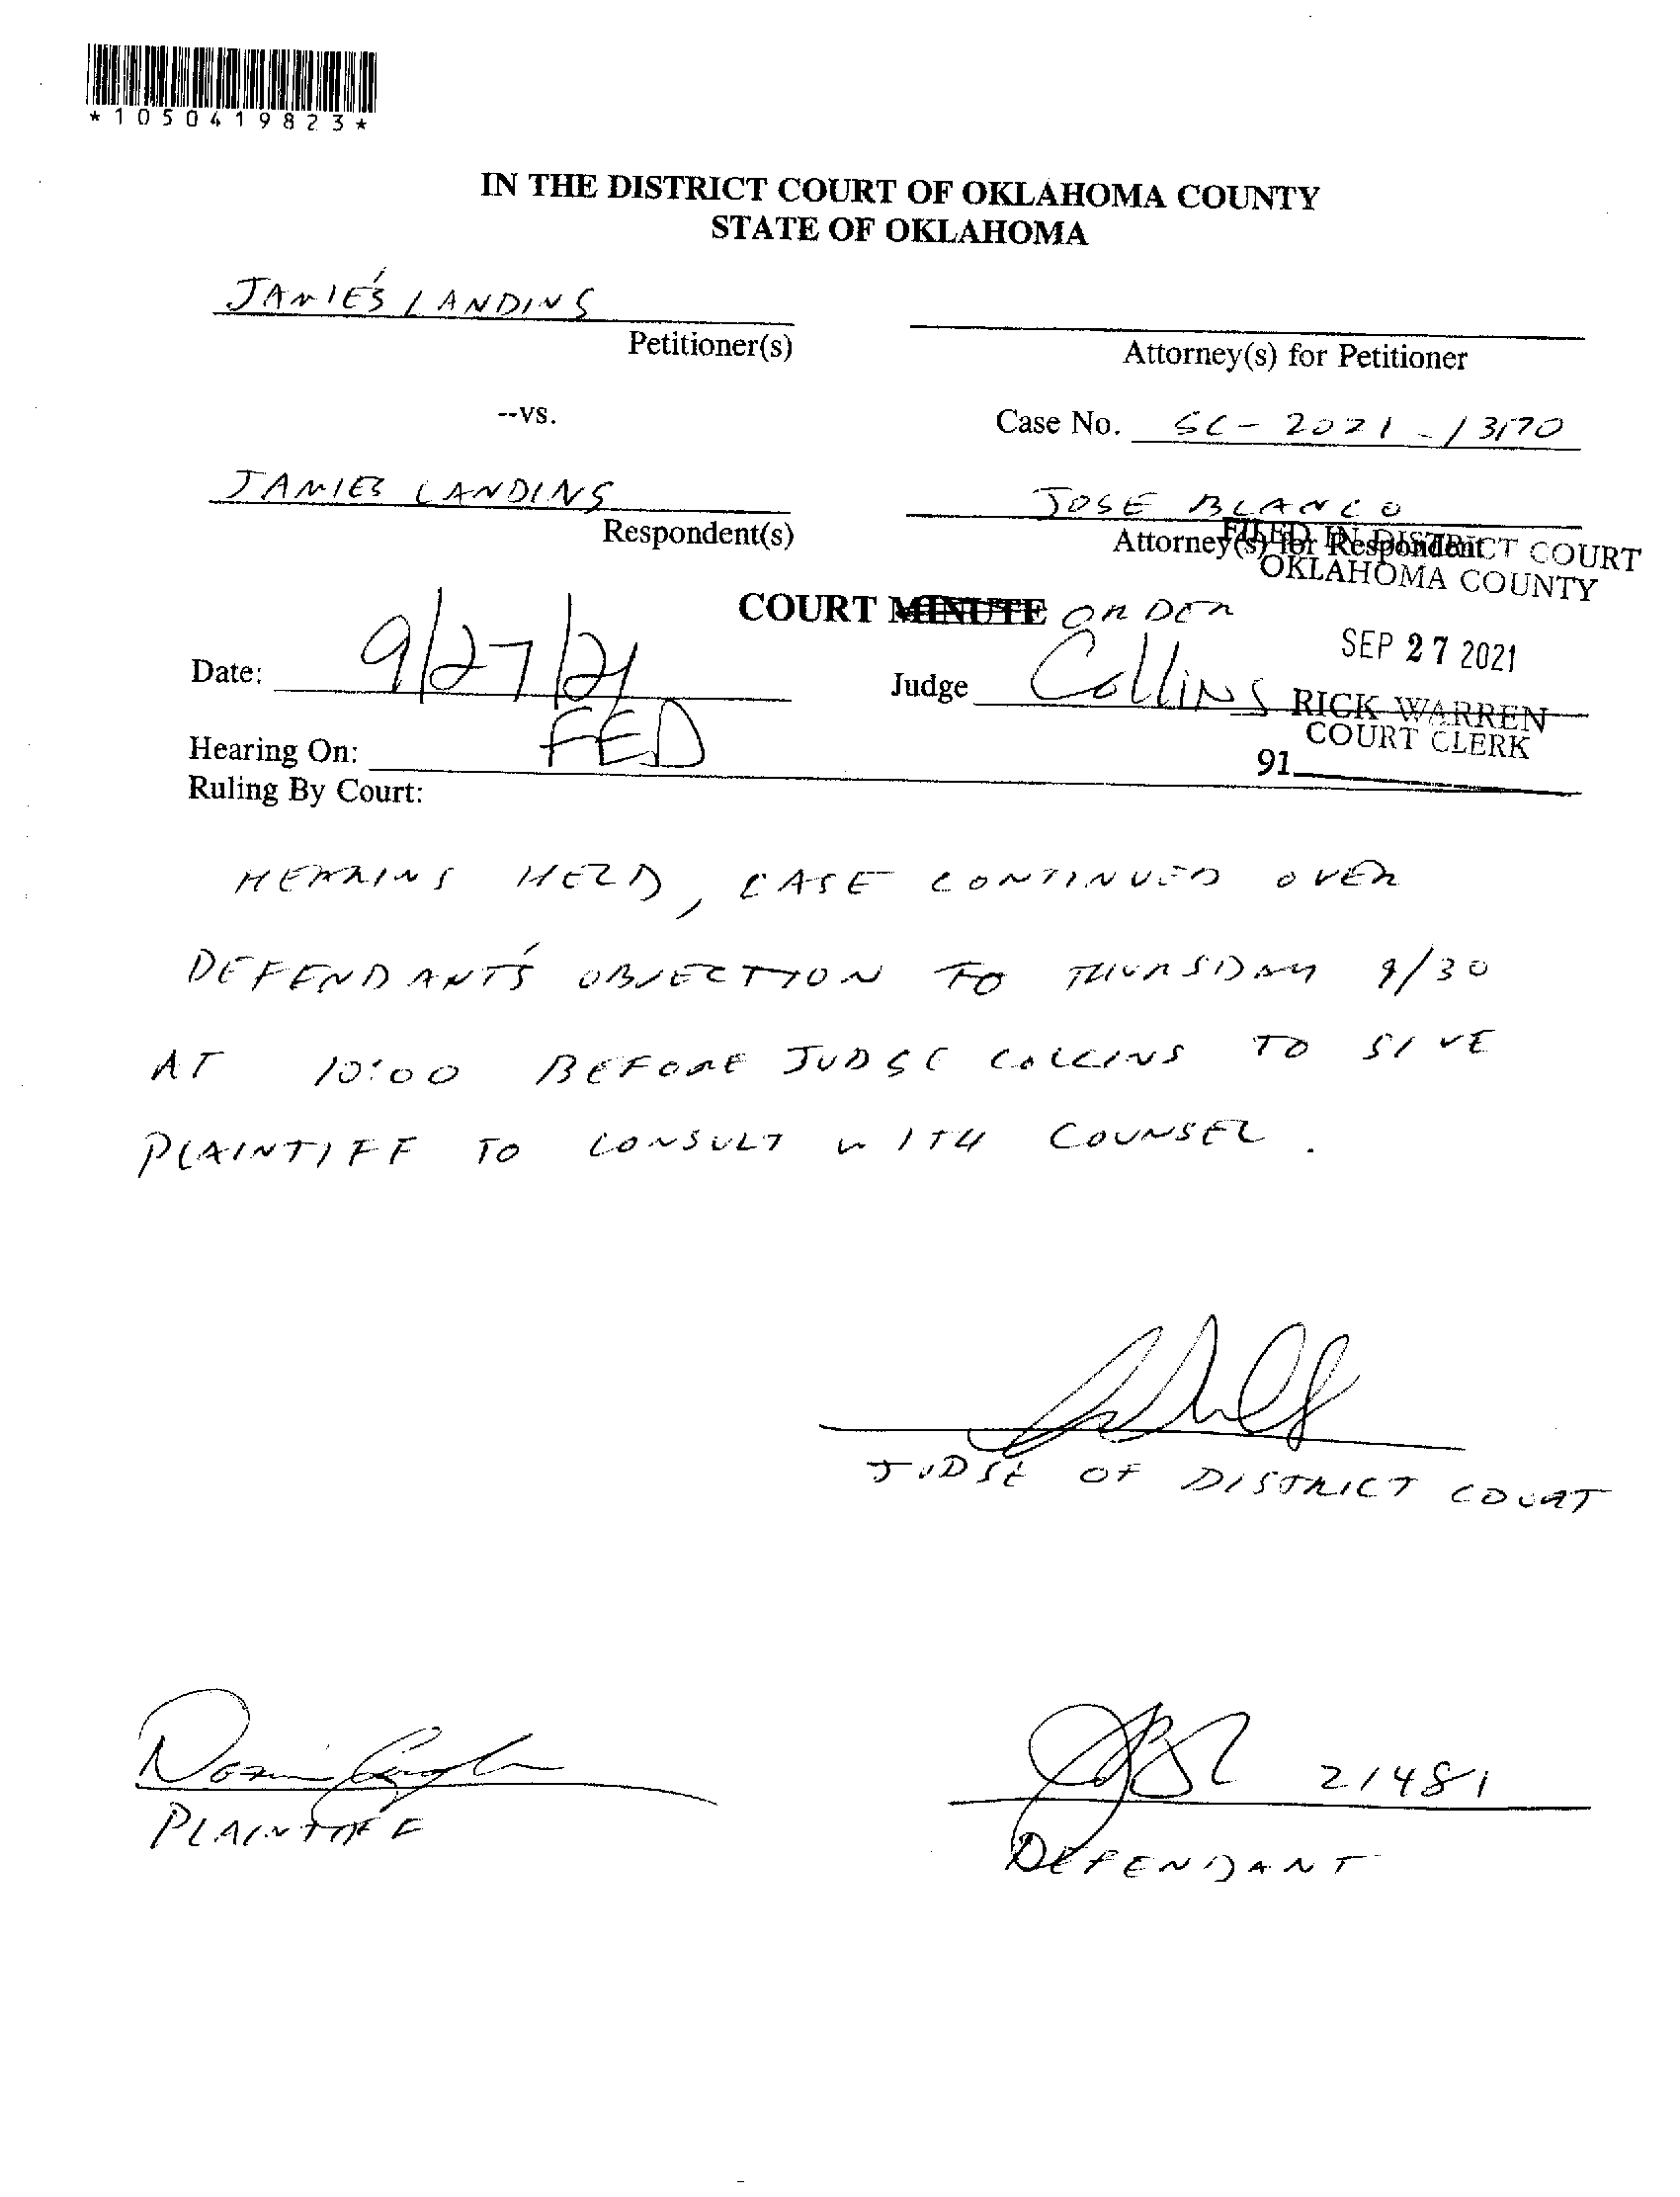 *1050419823*
IN THE DISTRICT COURT OF OKLAHOMA COUNTY
STATE OF OKLAHOMA
JAMIE'S LANDING
Petitioner(s)
Attorney(s) for Petitioner
--vs.
Case No. SC-2021-13170
JAMIES LANDING
Respondent(s)
JOSE BLANCO
Attorney(s) for Respondent
FILED IN DISTRICT COURT
OKLAHOMA COUNTY
COURT MINUTE ORDER
SEP 27 2021
Date: 9/27/21
Judge COLLINS
RICK WARREN
COURT CLERK
Hearing On: FED
91
Ruling By Court:
HEARING HELD, CASE CONTINUED OVER
DEFENDANT'S OBJECTION TO THURSDAY 9/30
AT 10:00 BEFORE JUDGE COLLINS TO GIVE
PLAINTIFF TO CONSULT WITH COUNSEL.
JUDGE OF DISTRICT COURT
21481
PLAINTIFF
DEFENDANT